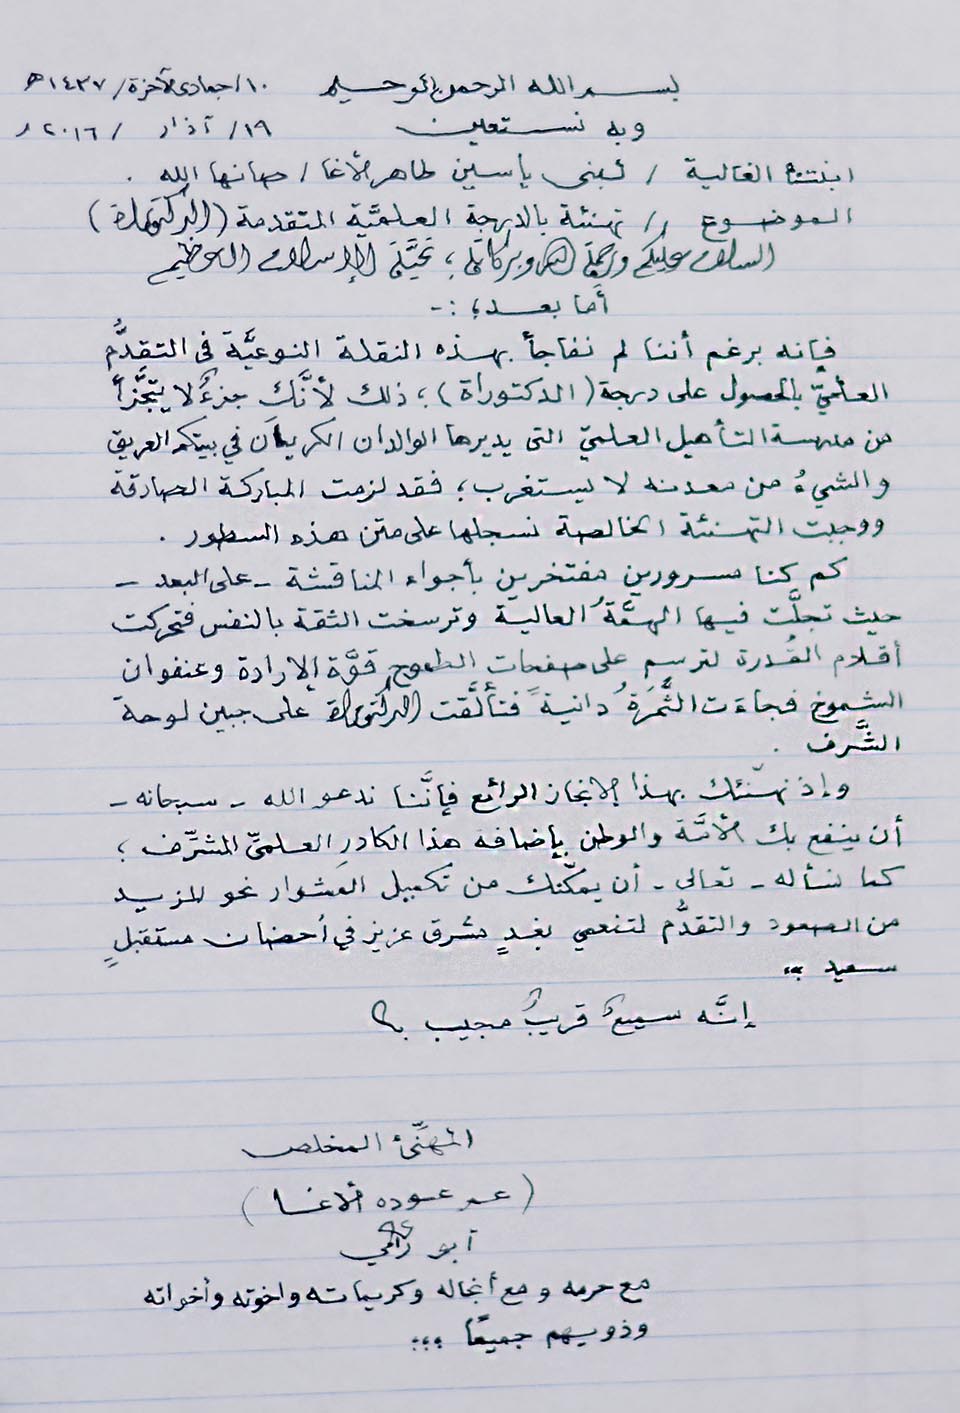 بسم الله الرحمن الرحيم ١٠/جمادى الآخرة/١٤٣٧هـ
وبه نستعين ١٩/ آذار / ٢٠١٦م
ابنتنا الغالية / لبنى ياسين طاهر الأغا / صانها الله .
الموضوع // تهنئة بالدرجة العلميَّة المتقدمة (الدكتوراة)
السلام عليكم ورحمة الله وبركاته ؛ تحيَّة الإسلام العظيم
أما بعد ؛ :-
فإنه برغم أننا لم نفاجأ بهذه النقلة النوعيَّة في التقدُّم
العلميّ بالحصول على درجة (الدكتوراة) ؛ ذلك لأنَّك جزءٌ لا يتجَّزأ
من مدرسة التأهيل العلميّ التي يديرها الوالدان الكريمان في بيتكم العريق
والشيءُ من معدنه لا يستغرب ؛ فقد لزمت المباركة الصادقة
ووجبت التهنئة الخالصة نسجلها على متن هذه السطور .
كم كنا مسرورين مفتخرين بأجواء المناقشة - على البعد -
حيث تجلَّت فيها الهمَّةُ العالية وترسخت الثقة بالنفس فتحركت
أقلام القُدرة لترسم على صفحات الطموح قوَّة الإرادة وعنفوان
الشموخ فجاءَت الثَّمرَةُ دانيةً فتألَّقت الدكتوراة على جبين لوحة
الشَّرف .
وإذ نهنّئك بهذا الإنجاز الرائع فإنَّنا ندعو الله - سبحانه -
أن ينفع بك الأمَّة والوطن بإضافة هذا الكادرِ العلميِّ المشرّف ؛
كما نسأله - تعالى - أن يمكّنك من تكميل المَشوار نحو المزيد
من الصعود والتقدُّم لتنعمي بغدٍ مشرق عزيز في أحضان مستقبلٍ
سعيد ..
إنَّه سميعٌ قريبٌ مجيب ،،
المهنِّئ المخلص
(عمر عوده الأغا)
أبو رامي
مع حرمه ومع أنجاله وكريماته واخوته وأخواته
وذويهم جميعًا ...